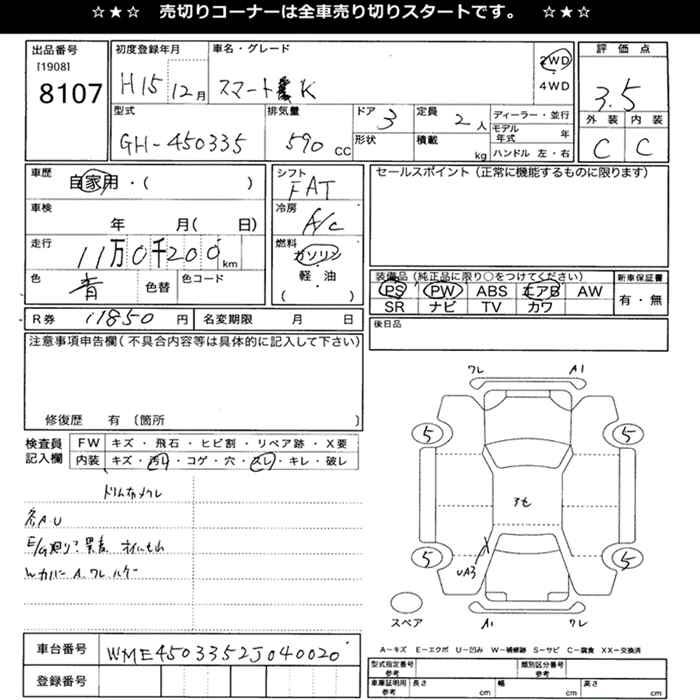 ☆★☆ 売切りコーナーは全車売り切りスタートです。 ☆★☆
出品番号
[1908]
8107
初度登録年月
H15 12月
車名・グレード
スマート K
2WD
4WD
評価点
3.5
外装 内装
C C
型式
GH-450335
排気量
590 CC
ドア
3
形状
定員
2人
積載
kg
ディーラー・並行
モデル年式 年
ハンドル 左・右
車歴
自家用・( )
車検
年 月( 日)
走行
11万0千200km
色
青
色替
色コード
シフト
FAT
冷房
A/C
燃料
ガソリン
軽・油
( )
セールスポイント(正常に機能するものに限ります)
装備品(純正品に限り○をつけてください)
PS PW ABS エアB AW
SR ナビ TV カワ
新車保証書
有・無
R券 11850円
名変期限 月 日
後日品
注意事項申告欄(不具合内容等は具体的に記入して下さい)
修復歴 有 〔箇所 〕
検査員記入欄
FW キズ・飛石・ヒビ割・リペア跡・X要
内装 キズ・汚レ・コゲ・穴・スレ・キレ・破レ
各A.U
Wカバー A.ワレ.ハゲ
ワレ A1
5 5
5 5
UA3
スペア
A1 ワレ
A－キズ E－エクボ U－凹み W－補修跡 S－サビ C－腐食 XX－交換済
車台番号 WME4503352J040020
登録番号
型式指定番号 参考
類別区分番号 参考
車庫証明用 参考
長さ cm 幅 cm 高さ cm